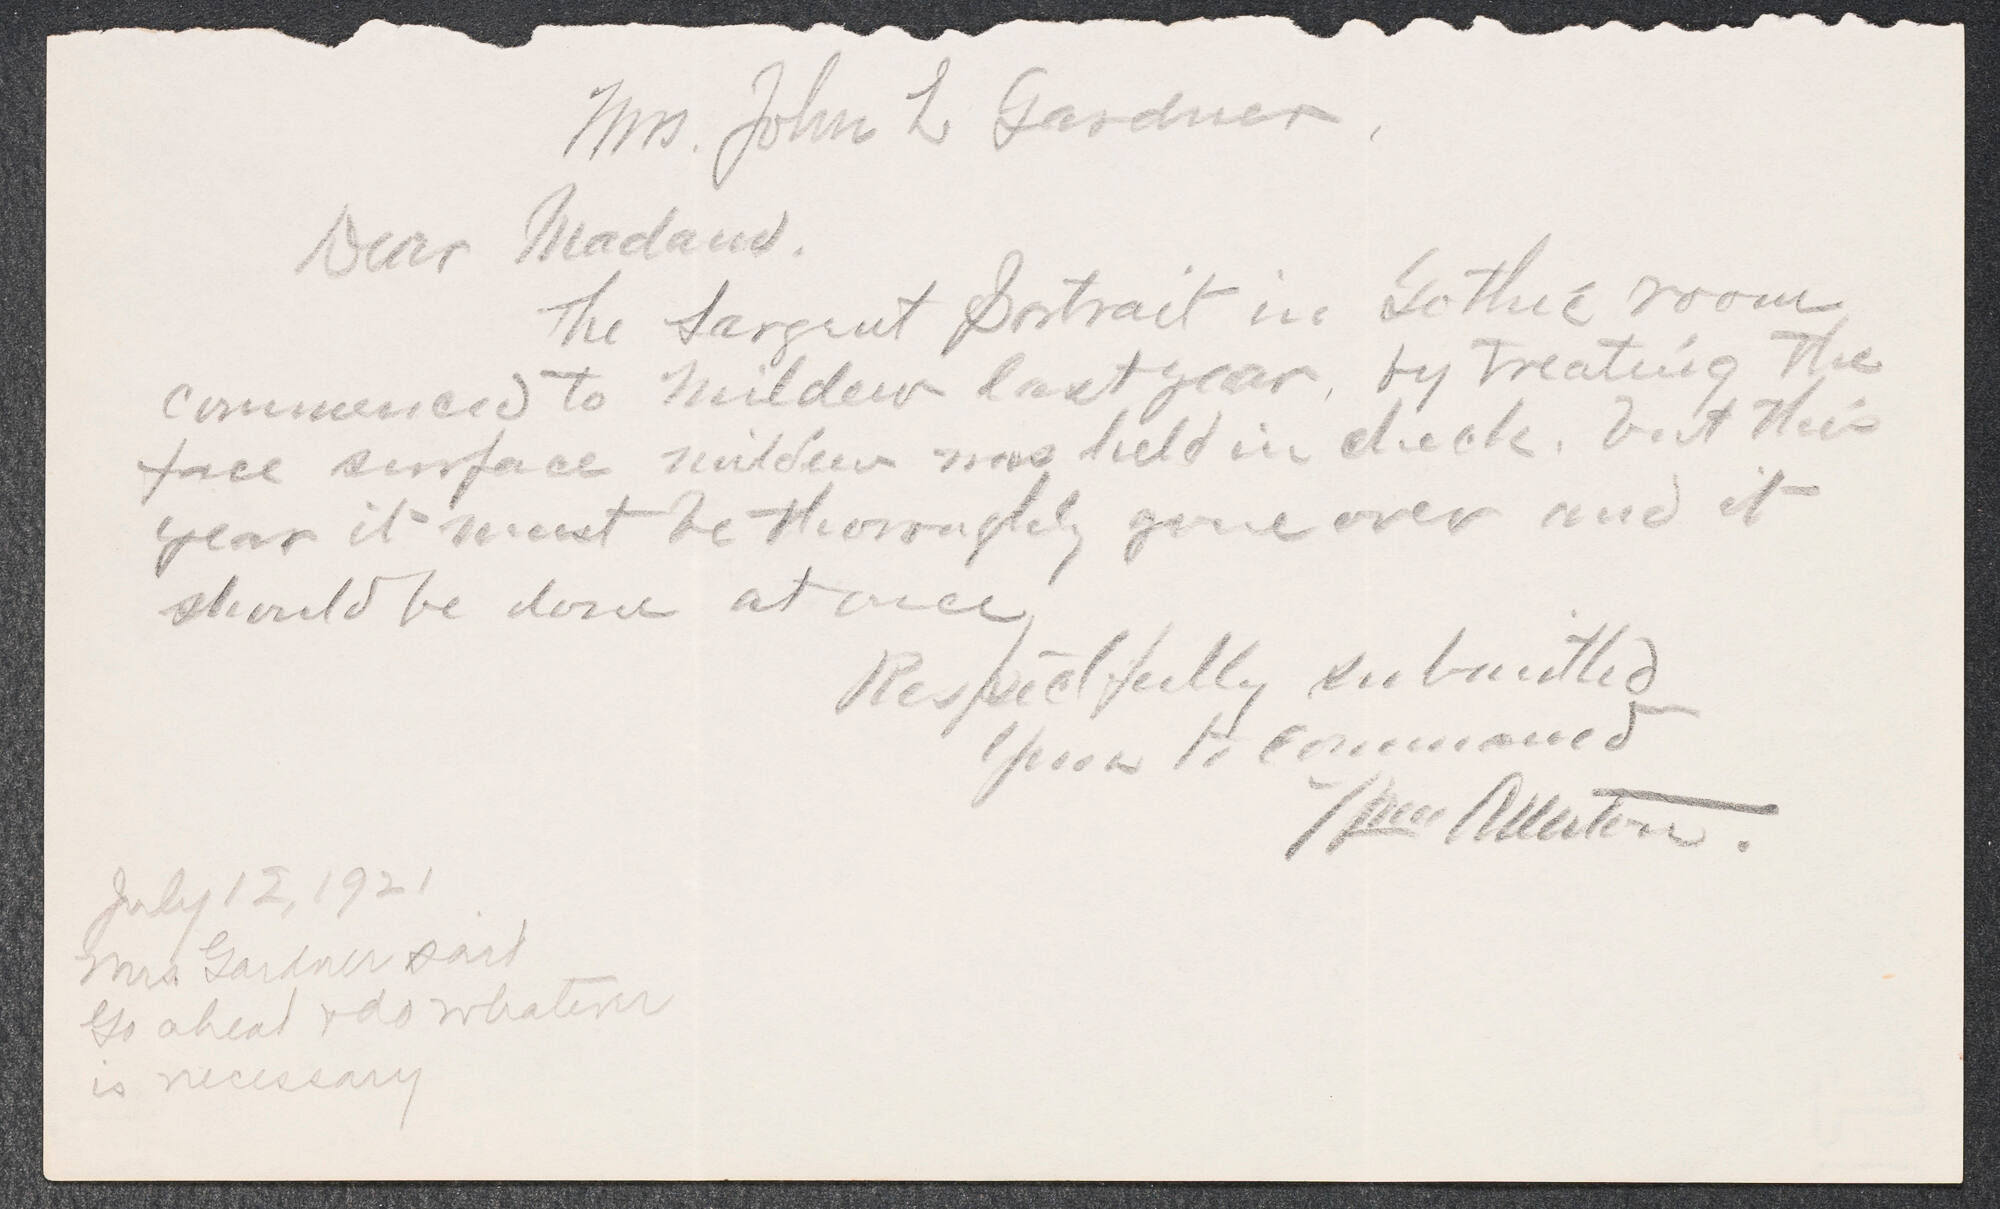 Mrs. John L Gardner,
Dear Madam.
The Sargent Portrait in Gothic room
commenced to mildew last year, by treating the
face surface mildew was held in check. but this
year it must be thoroughly gone over and it
should be done at once,
Respectfully submitted
Yours to command
Wm Allerton.
July 12, 1921
Mrs. Gardner said
Go ahead & do whatever
is necessary